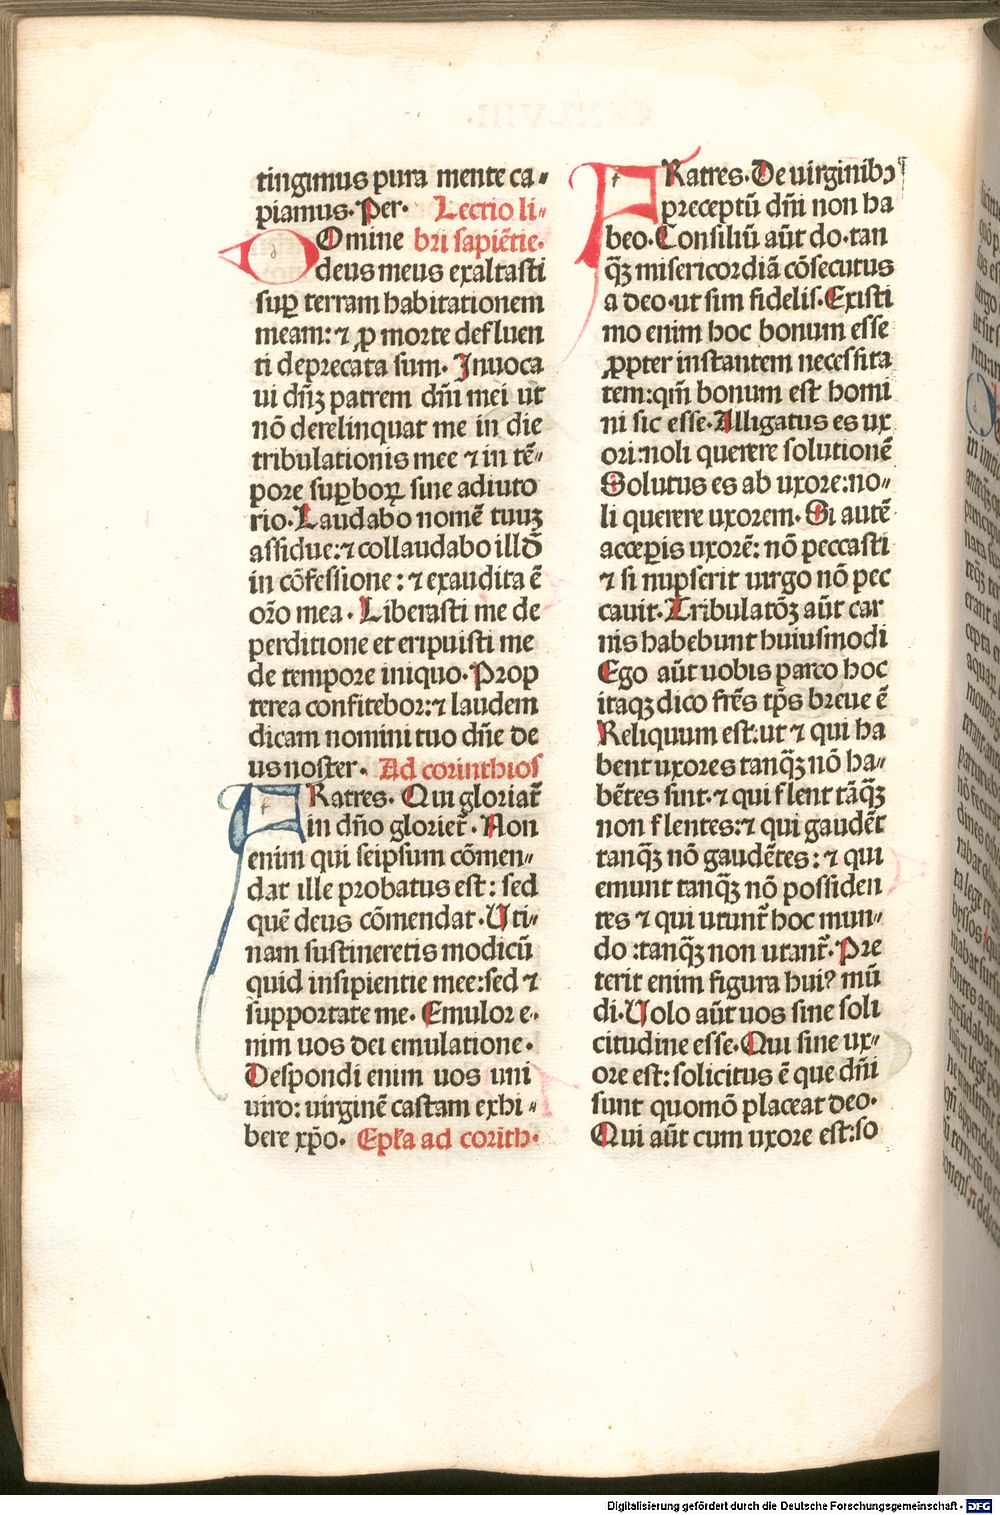 tingimus pura mente ca⸗
piamus. Per. Lectio li⸗
DOmine bri sapiẽtie.
deus meus exaltasti
suꝑ terram habitationem
meam: ⁊ ꝓ morte defluen
ti deprecata sum. Inuoca
ui dñꝫ patrem dñi mei ut
nõ derelinquat me in die
tribulationis mee ⁊ in tẽ⸗
pore suꝑboꝝ sine adiuto
rio. Laudabo nomẽ tuuꝫ
assidue: ⁊ collaudabo illđ
in cõfessione: ⁊ exaudita ẽ
oŕo mea. Liberasti me de
perditione et eripuisti me
de tempore iniquo. Prop
terea confitebor: ⁊ laudem
dicam nomini tuo dñe de
us noster. Ad corinthios
FRatres. Qui gloriat̃
in dño gloriet̃. Non
enim qui seipsum cõmen⸗
dat ille probatus est: sed
quẽ deus cõmendat. Uti⸗
nam sustineretis modicũ
quid insipientie mee: sed ⁊
supportate me. Emulor e⸗
nim uos dei emulatione.
Despondi enim uos uni
uiro: uirginẽ castam exhi⸗
bere xp̃o. Ep̃ła ad corith.
FRatres. De uirginibꝫ
preceptũ dñi non ha
beo. Consiliũ aũt do. tan
qꝫ̃ misericordiã cõsecutus
a deo. ut sim fidelis. Existi
mo enim hoc bonum esse
ꝓpter instantem necessita
tem: qm̃ bonum est homi
ni sic esse. Alligatus es ux
ori: noli querere solutionẽ
Solutus es ab uxore: no⸗
li querere uxorem. Si autẽ
acceꝑis uxorẽ: nõ peccasti
⁊ si nupserit uirgo nõ pec
cauit. Tribulatõꝫ aũt car
nis habebunt huiusmodi
Ego aũt uobis parco hoc
itaqꝫ dico frẽs tp̃s breue ẽ
Reliquum est: ut ⁊ qui ha
bent uxores tanqꝫ̃ nõ ha⸗
bẽtes sint. ⁊ qui flent tãqꝫ̃
non flentes: ⁊ qui gaudẽt
tanqꝫ̃ nõ gaudẽtes: ⁊ qui
emunt tanqꝫ̃ nõ possiden
tes ⁊ qui utunt̃ hoc mun⸗
do: tanqꝫ̃ non utant̃. Pre
terit enim figura huiꝰ mũ
di. Uolo aũt uos sine soli
citudine esse. Qui sine ux⸗
ore est: solicitus ẽ que dñi
sunt quomõ placeat deo.
Qui aũt cum uxore est: so
Digitalisierung gefördert durch die Deutsche Forschungsgemeinschaft - DFG